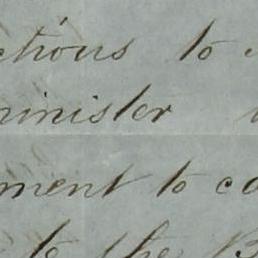 ctions to
minister
ment to co
to the B